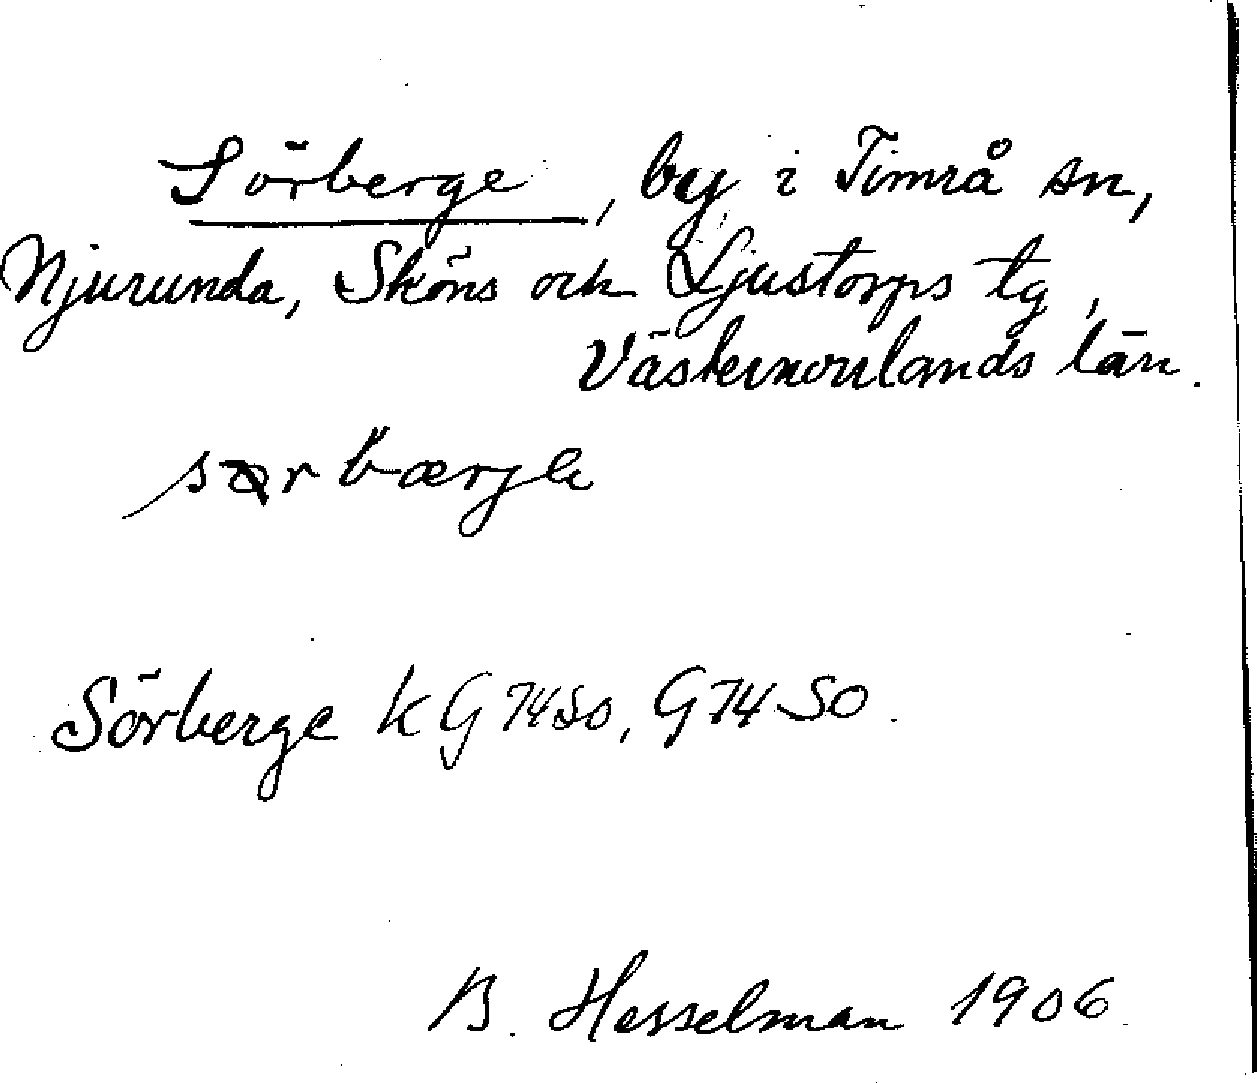 Sörberge, by i Timrå sn,
Njurunda, Sköns och Ljustorps tg,
Västernorrlands län.
sørbærje
Sörberge k G 74 SO, G 74 SO.
B. Hesselman 1906